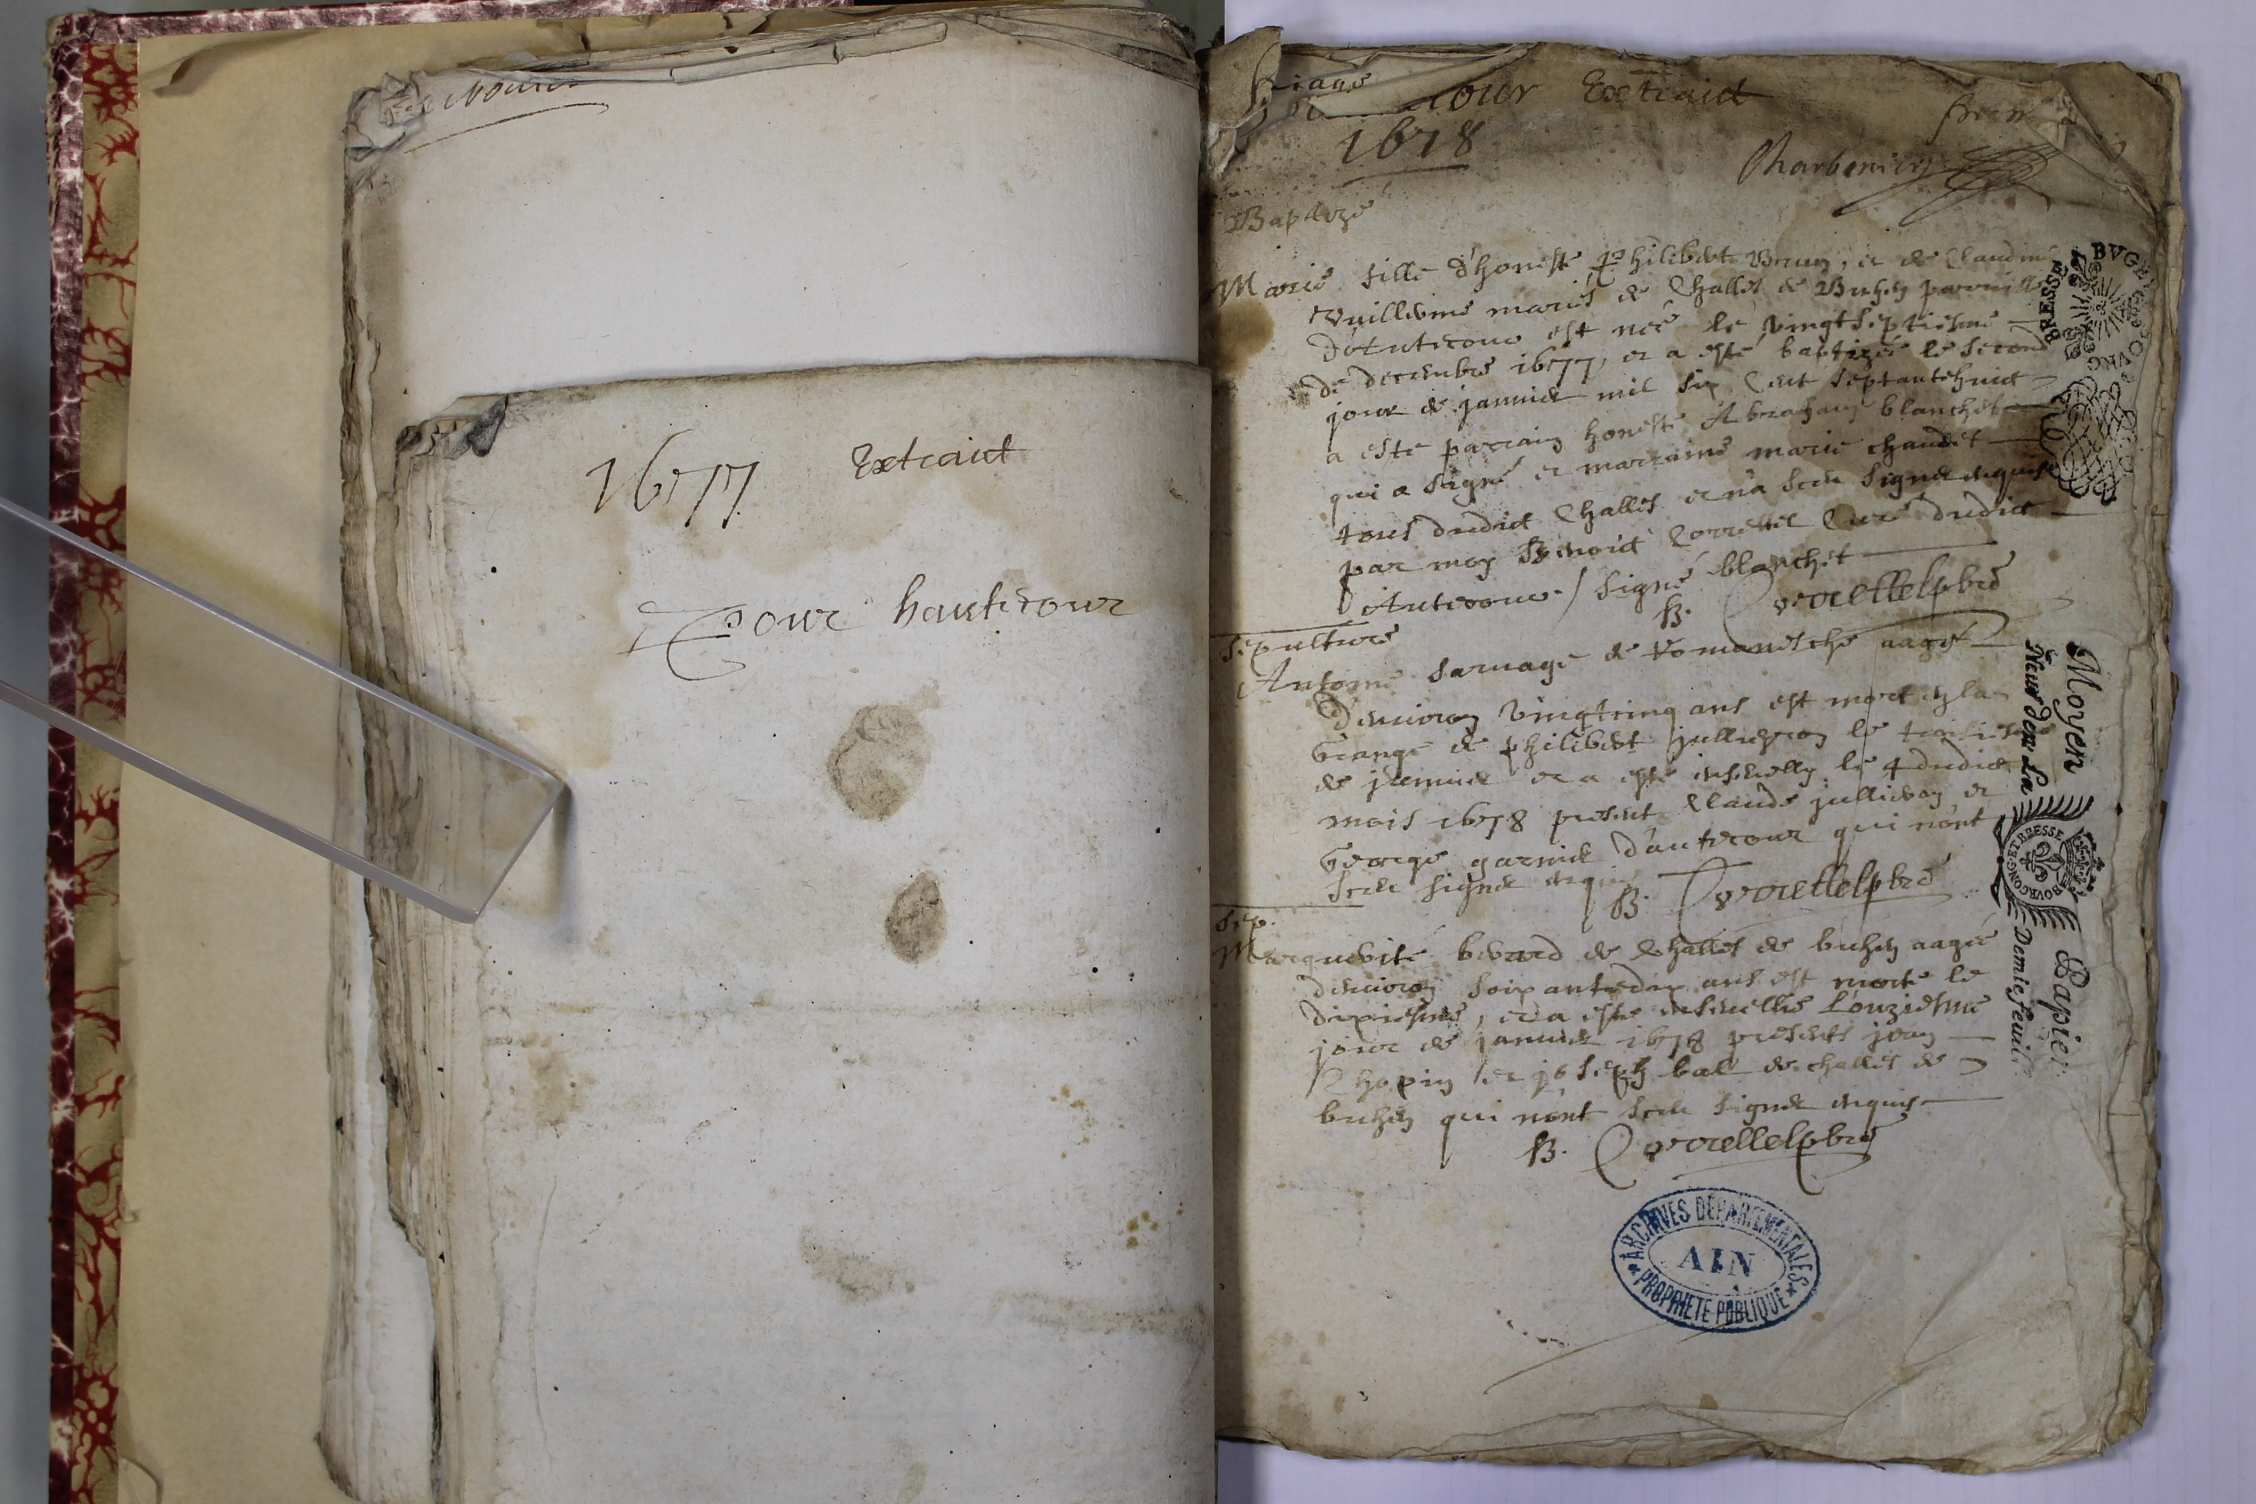 1677 Extraict
Pour hautecour
cour Extraict
1678
Baptezé
Marie fille d'honeste Philibert Brun, et de Claudine
Vuillerme mariés de Challes de Buhen
d'Autecour est née le vingtseptiesme
de decembre 1677, et a esté baptizée le second
jour de janvier mil six cent septantehuict
a esté parrain honeste Abraham blanchet
qui a signé et marraine marie chaudet
tous dudict Challes et n'a sceu signer enquise
par moy Benoict Correttel Curé dudict
Autecour. / signé blanchet
B. Correttel pbre
Sepulture
Antoine Sarvage de Romanesche aagé
d'environ vingtcinq ans est mort en la
Grange de philibert jullieron le troisiesme
de janvier et a esté ensevely le 4 dudict
mois 1678 present Claude jullieron et
George garnier d'autecour qui n'ont
sceu signer
B. Correttel pbre
Sep.
Marguerite berard de Challes de buhen aagée
d'environ soixantedix ans est morte le
dixiesme, et a esté ensevellie L'onziesme
jour de janvier 1678 presents jean
Chapin et joseph bal de challes de
buhen qui n'ont sceu signer enquis
B. Correttel pbre
BRESSE
Moyen Papier
Neuf den. La Demie feuil
BOVRGONG ET BRESSE
ARCHIVES DÉPARTEMENTALES
AIN
PROPRIÉTÉ PUBLIQUE